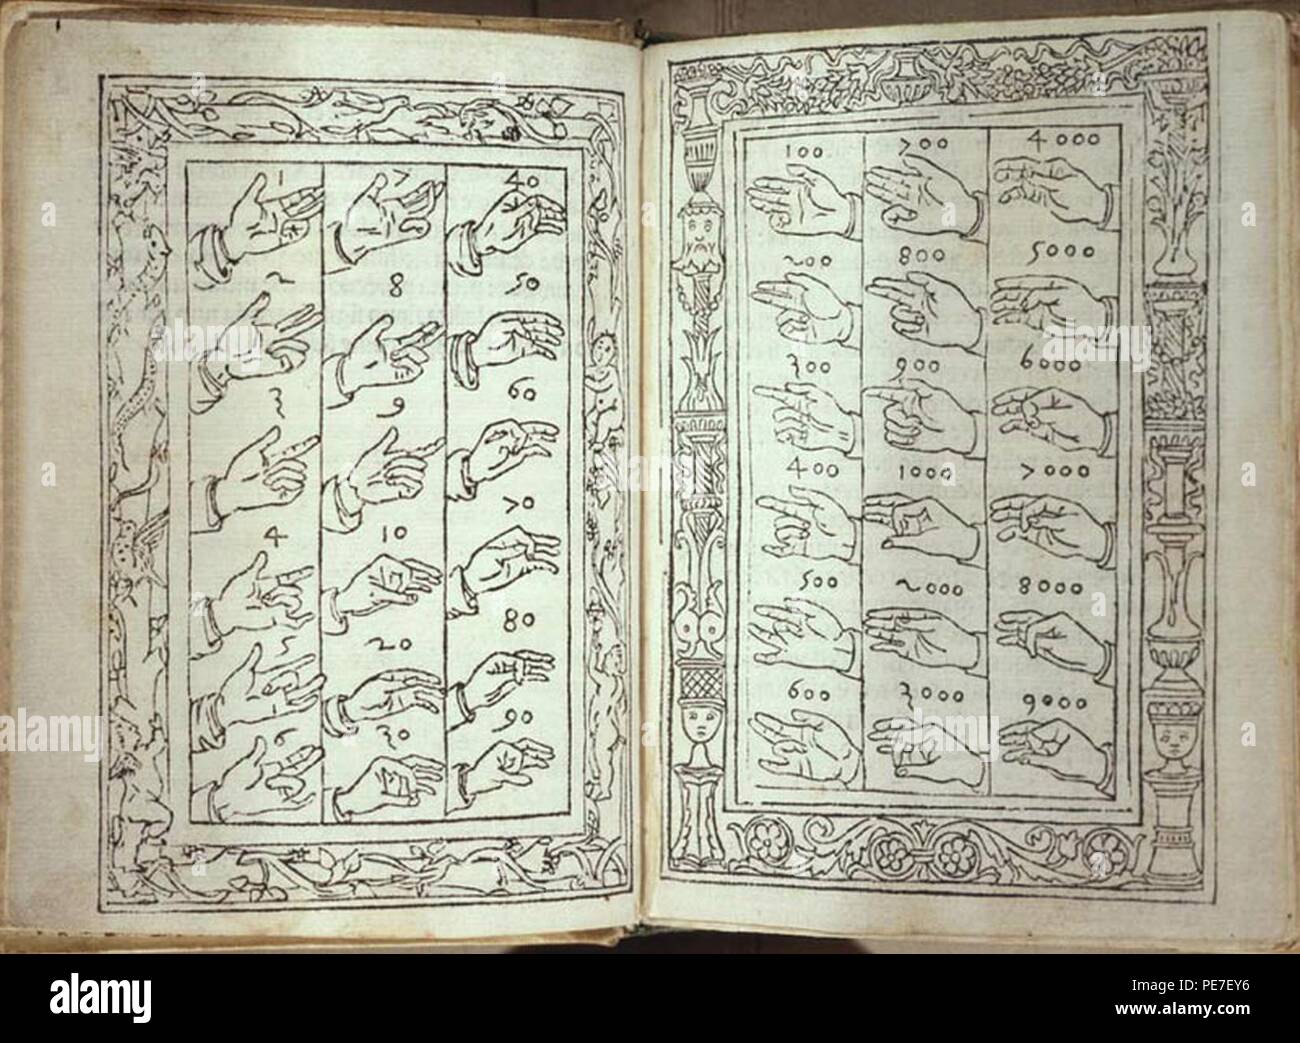 1
2
3
4
5
6
7
8
9
10
20
30
40
50
60
70
80
90
100
200
300
400
500
600
700
800
900
1000
2000
3000
4000
5000
6000
7000
8000
9000
alamy
alamy
Image ID: PE7EY6
www.alamy.com